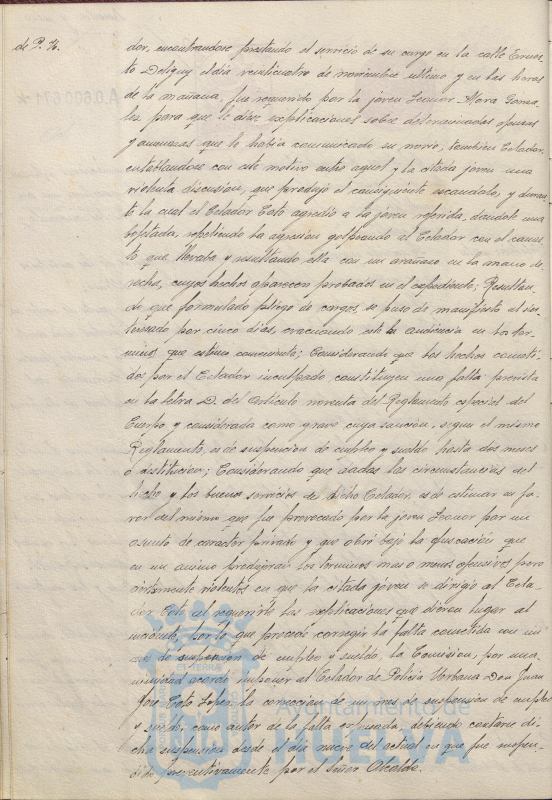 de P. U.
dor, encontrandose prestando el servicio de su cargo en la calle Ernes-
to Deligny el dia veinticuatro de noviembre ultimo y en las horas
de la mañana, fue requerido por la joven Leonor Mora Gonza-
lez para que le diese explicaciones sobre determinadas ofensas
y amenazas que le habia comunicado su novio, tambien Celador,
entablandose con este motivo entre aquel y la citada joven una
violenta discusion, que produjo el consiguiente escandalo, y duran-
te la cual el Celador Coto agredio a la joven referida, dandole una
bofetada, repeliendo la agresion golpeando al Celador con el canas-
to que llevaba y resultando ella con un arañazo en la mano de-
recha, cuyos hechos aparecen probados en el expediente; Resultan-
do que formulado pliego de cargos, se puso de manifiesto al in-
teresado por cinco dias, evacuando este la audiencia en los ter-
minos que estimo conveniente; Considerando que los hechos cometi-
dos por el Celador inculpado constituyen una falta prevista
en la letra D. del Articulo noventa del Reglamento especial del
Cuerpo y considerada como grave cuya sancion, segun el mismo
Reglamento, es de suspension de empleo y sueldo hasta dos meses
o destitucion; Considerando que dadas las circunstancias del
hecho y los buenos servicios de dicho Celador, es de estimar en fa-
vor del mismo que fue provocado por la joven Leonor por un
asunto de caracter privado y que obró bajo la ofuscación que
en su animo produjeran los terminos mas o menos ofensivos pero
ciertamente violentos en que la citada joven se dirigio al Cela-
dor Coto al requerirle las explicaciones que dieron lugar al
incidente, por lo que procede corregir la falta cometida con un
mes de suspension de empleo y sueldo, la Comision, por una-
nimidad acordó imponer al Celador de Policia Urbana Don Juan
José Coto Lopez la correccion de un mes de suspension de empleo
y sueldo, como autor de la falta expresada, debiendo contarse di-
cha suspension desde el dia nueve del actual en que fue suspen-
dido preventivamente por el Señor Alcalde.
Ayuntamiento de
HUELVA